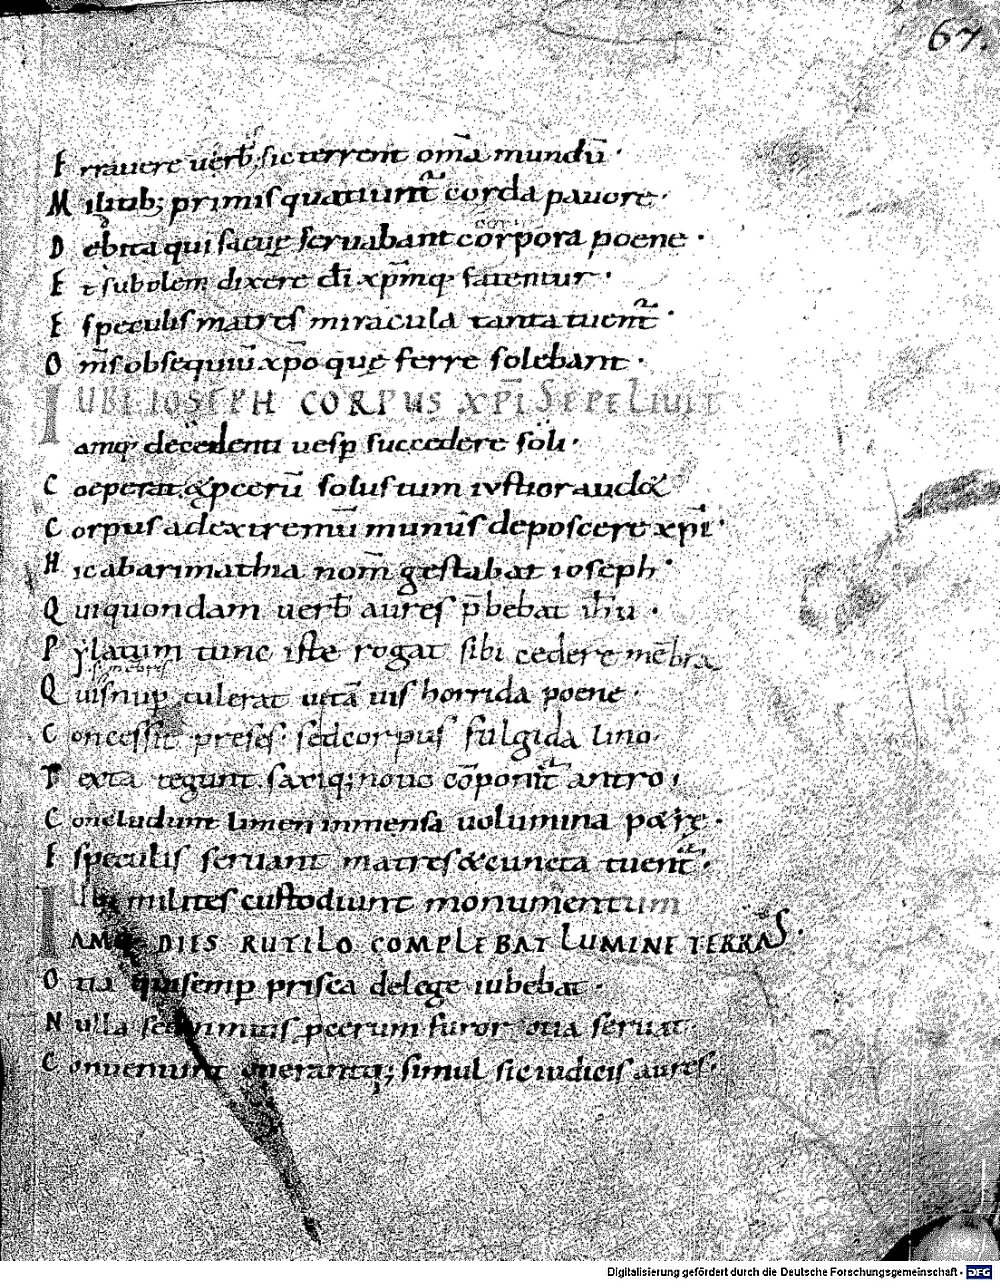 67.
Errauere uerb; sic terrent om̄a mundū ·
Militib; primis quatiunt̃ corda pauore ·
Debita qui sacuę seruabant corpora poene ·
Et subolem dixere di xp̄mq; fatentur ·
E speculis matres miracula tanta tuent̃ ·
Om̄s obsequiū xp̄o quę ferre solebant ·
UBI IOSEPH CORPUS XP̄I SEPELIUIT
Iamq; decedenti uesp̱ succedere soli ·
Coeperat & p̱cerū solus tum iustior audet
Corpus ad extremū munus deposcere xp̄i ·
Hic abarimathia nom̄ gestabat ioseph ·
Qui quondam uerb̄ aures p̄bebat ih̄u ·
Pylatum tunc iste rogat sibi cedere mēbra
Quis nup̱ tulerat uitā uis horrida poene ·
Concessit preses · sed corpus fulgida lino ·
Texta tegunt. saxiq; nouo cōponit̃ antro ;
Concludunt limen inmensa uolumina petrę ·
E speculis seruant matres & cuncta tuent̃ ·
Ubi milites custodiunt monumentum
IAMQ; DIES RUTILO COMPLEBAT LUMINE TERRAS ·
Otia qui semp̱ prisca de lege iubebat ·
Nulla sed primis p̱cerum furor otia seruat ·
Conueniunt onerantq; simul sic iudicis aures ·
Digitalisierung gefördert durch die Deutsche Forschungsgemeinschaft - DFG